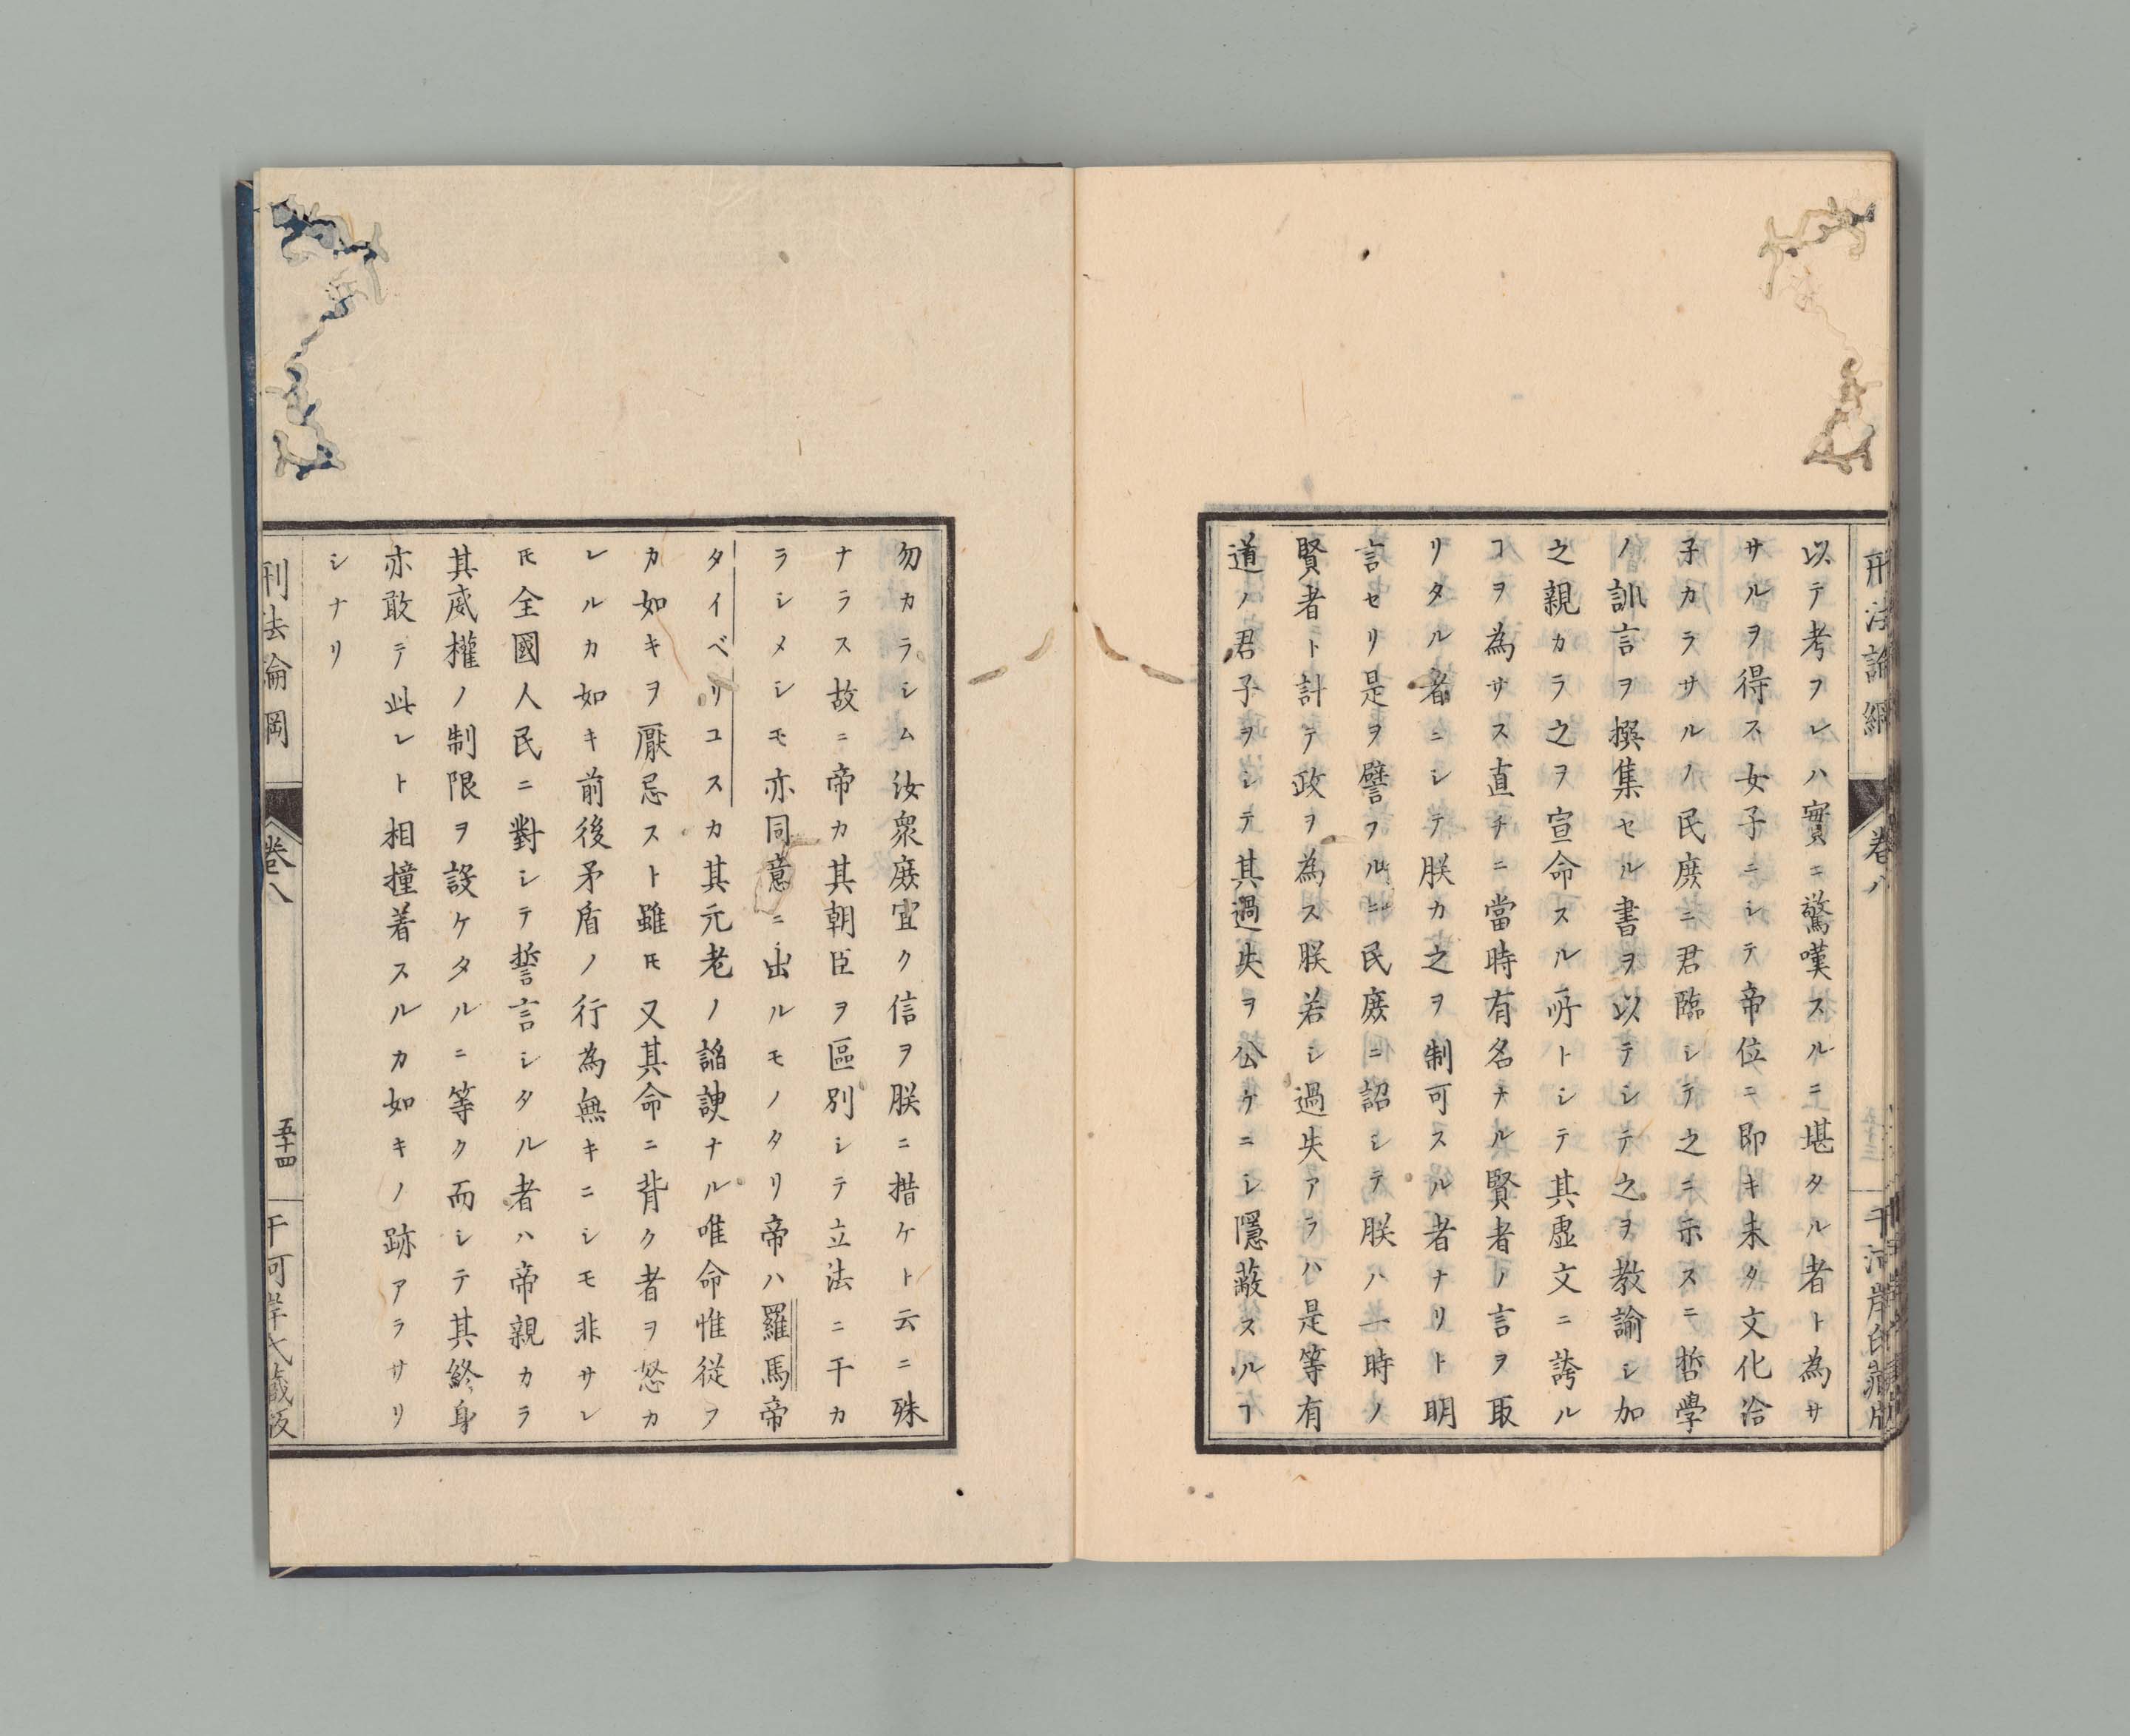 刑法論綱
卷八
以テ考フレハ實ニ驚嘆スルニ堪タル者ト為サ
サルヲ得ス女子ニシテ帝位ニ即キ未タ文化洽
子カラサルノ民庻ニ君臨シテ之ニ示スニ哲學
ノ訓言ヲ撰集セル書ヲ以テシテ之ヲ教諭シ加
之親カラ之ヲ宣命スル所トシテ其虚文ニ誇ル
ヿヲ為サス直チニ當時有名ナル賢者ノ言ヲ取
リタル者ニシテ朕カ之ヲ制可スル者ナリト明
言セリ是ヲ譬フルニ民庻ニ詔シテ朕ハ一時ノ
賢者ト計テ政ヲ為ス朕若シ過失アラハ是等有
道ノ君子ヲシテ其過失ヲ公ケニシ隱蔽スルヿ
勿カラシム汝衆庻宜ク信ヲ朕ニ措ケト云ニ殊
ナラス故ニ帝カ其朝臣ヲ區別シテ立法ニ干カ
ラシメシモ亦同意ニ出ルモノタリ帝ハ羅馬帝
タイベリユスカ其元老ノ謟諛ナル唯命惟從フ
カ如キヲ厭忌スト雖𪜈又其命ニ背ク者ヲ怒カ
レルカ如キ前後矛盾ノ行為無キニシモ非サレ
𪜈全國人民ニ對シテ誓言シタル者ハ帝親カラ
其威權ノ制限ヲ設ケタルニ等ク而シテ其終身
亦敢テ此レト相撞着スルカ如キノ跡アラサリ
シナリ
刑法論綱
卷八
五十四
干河岸氏藏版